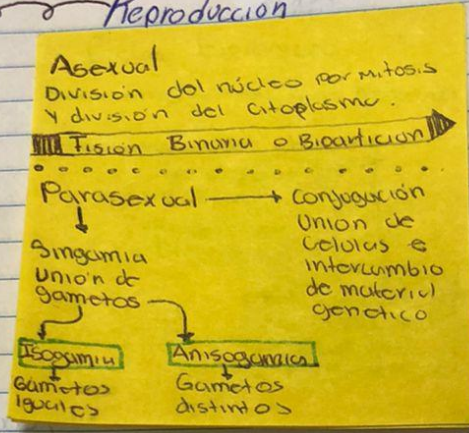 Reproducción
Asexual
División del núcleo por mitosis
y división del citoplasma.
Fisión Binaria o Bipartición
Parasexual → Conjugación
Unión de
Celulas e
intercambio
de material
genetico
Singamia
Unión de
gametos
Isogamia
Gametos
iguales
Anisogamica
Gametos
distintos